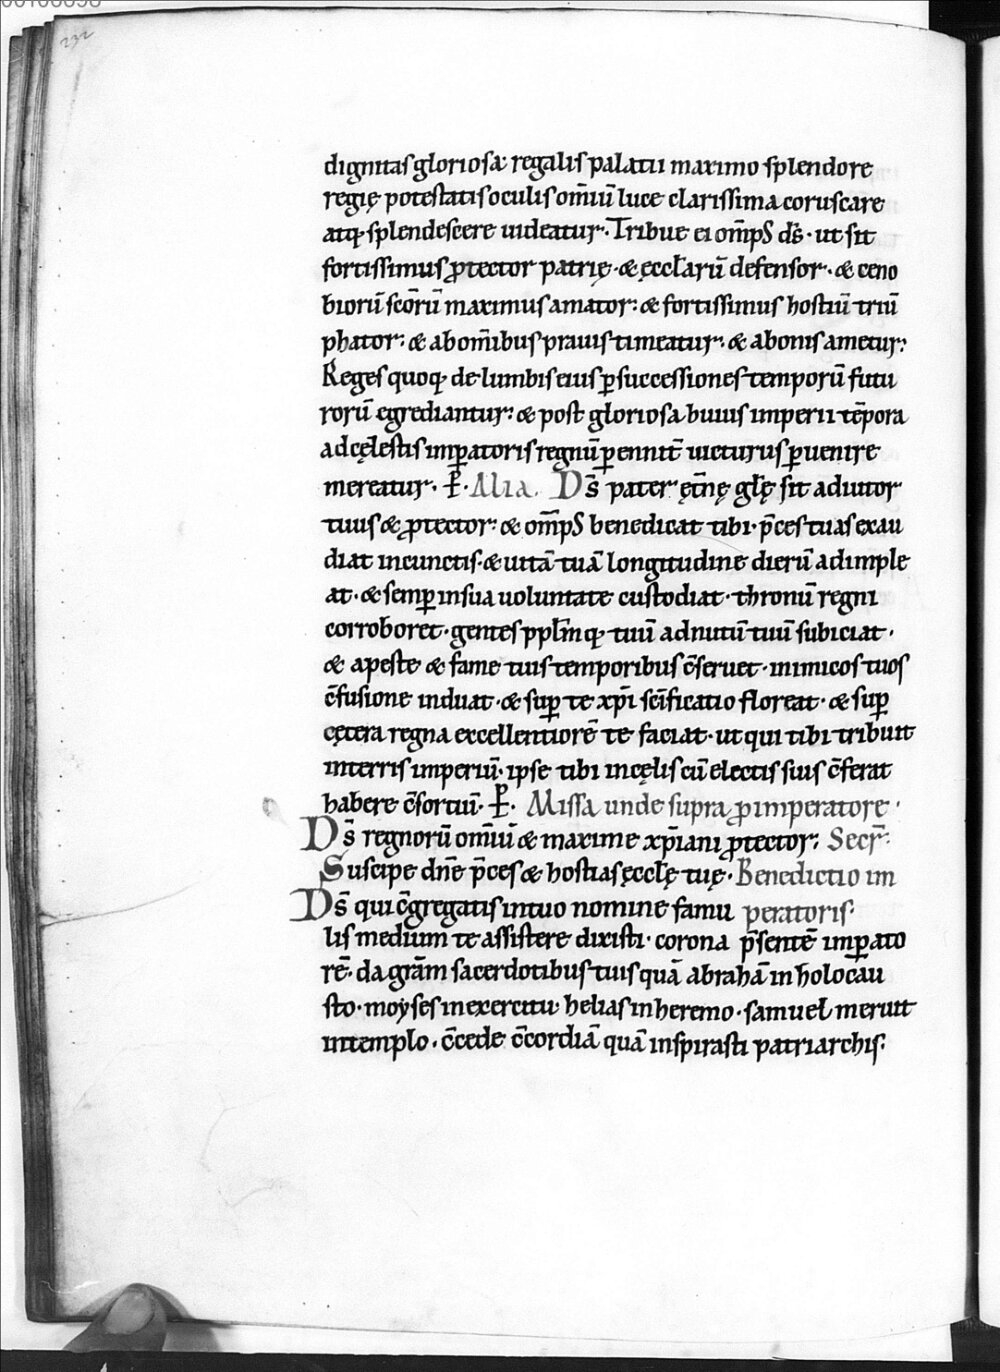 232
dignitas gloriosa regalis palatii maximo splendore
regię potestatis oculis om̄iū luce clarissima coruscare
atq; splendescere uideatur. Tribue ei om̄ps d̄s. ut sit
fortissimus ꝓtector patrię. & ęccl̄arū defensor. & ceno
biorū sc̄orū maximus amator: & fortissimus hostiū triū
phator: & ab om̄ibus prauis timeatur. & a bonis ametur:
Reges quoq; de lumbis eius ꝑ successiones temporū futu
rorū egrediantur: & post gloriosa huius imperii tēpora
ad cęlestis imꝑatoris regnū ꝑennit̄ uicturus ꝑuenire
mereatur. P. Alia. D̄s pater ęt̄nę gl̄ę sit adiutor
tuus & ꝓtector: & om̄ps benedicat tibi. p̄ces tuas exau
diat in cunctis. & uitā tuā longitudine dierū adimple
at. & semꝑ in sua uoluntate custodiat. thronū regni
corroboret. gentes ppl̄m q; tuū ad nutū tuū subiciat.
& a peste & fame tuis temporibus c̄seruet. inimicos tuos
c̄fusione induat. & suꝑ te xp̄i sc̄ificatio floreat. & suꝑ
cętera regna excellentiorē te faciat. ut qui tibi tribuit
in terris imperiū. ipse tibi in cęlis cū electis suis c̄ferat
habere c̄sortiū. P. Missa unde supra ꝓ imperatore.
D̄s regnorū om̄iū & maxime xp̄iani ꝓtector. Secr̄.
Suscipe dn̄e p̄ces & hostias ęccl̄ę tuę. Benedictio im
D̄s qui c̄gregatis in tuo nomine famu peratoris.
lis medium te assistere dixisti. corona p̄sentē imꝑato
rē. da grām sacerdotibus tuis quā abrahā in holocau
sto. moyses in exercitu. helias in heremo. samuel meruit
in templo. c̄cede c̄cordiā quā inspirasti patriarchis.